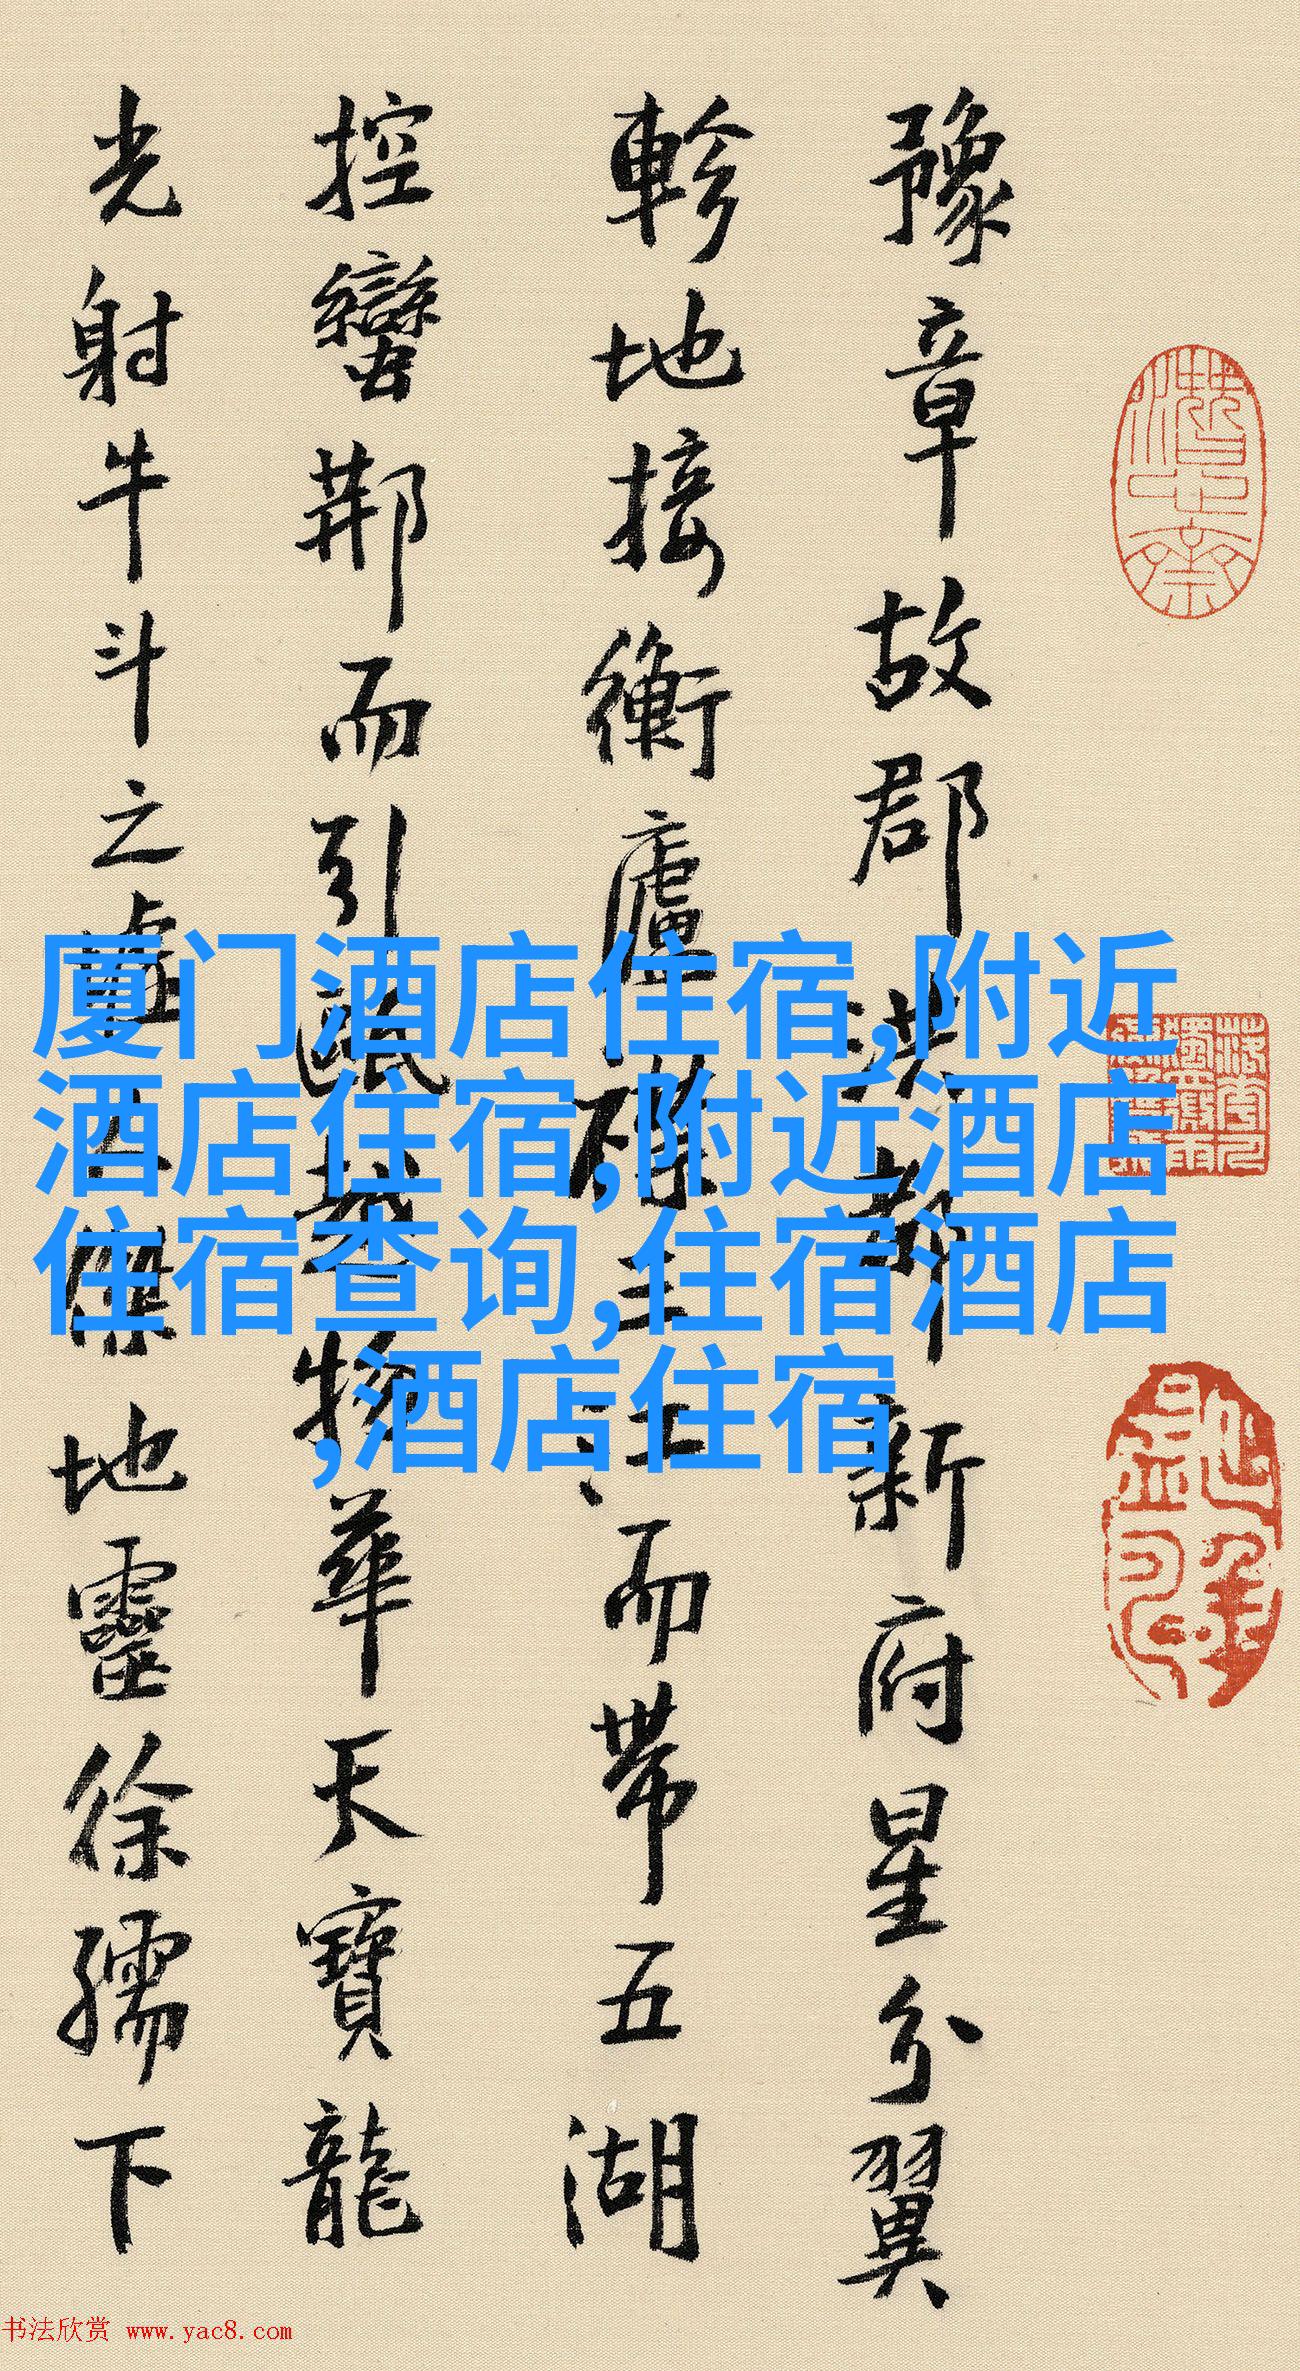 豫章故郡洪都新府星分翼
軫地接衡廬襟三江而帶五湖
控蠻荆而引甌越物華天寶龍
光射牛斗之墟人傑地靈徐孺下
厦门酒店住宿,附近
酒店住宿,附近酒店
住宿查询,住宿酒店
,酒店住宿
书法欣赏 www.yac8.com